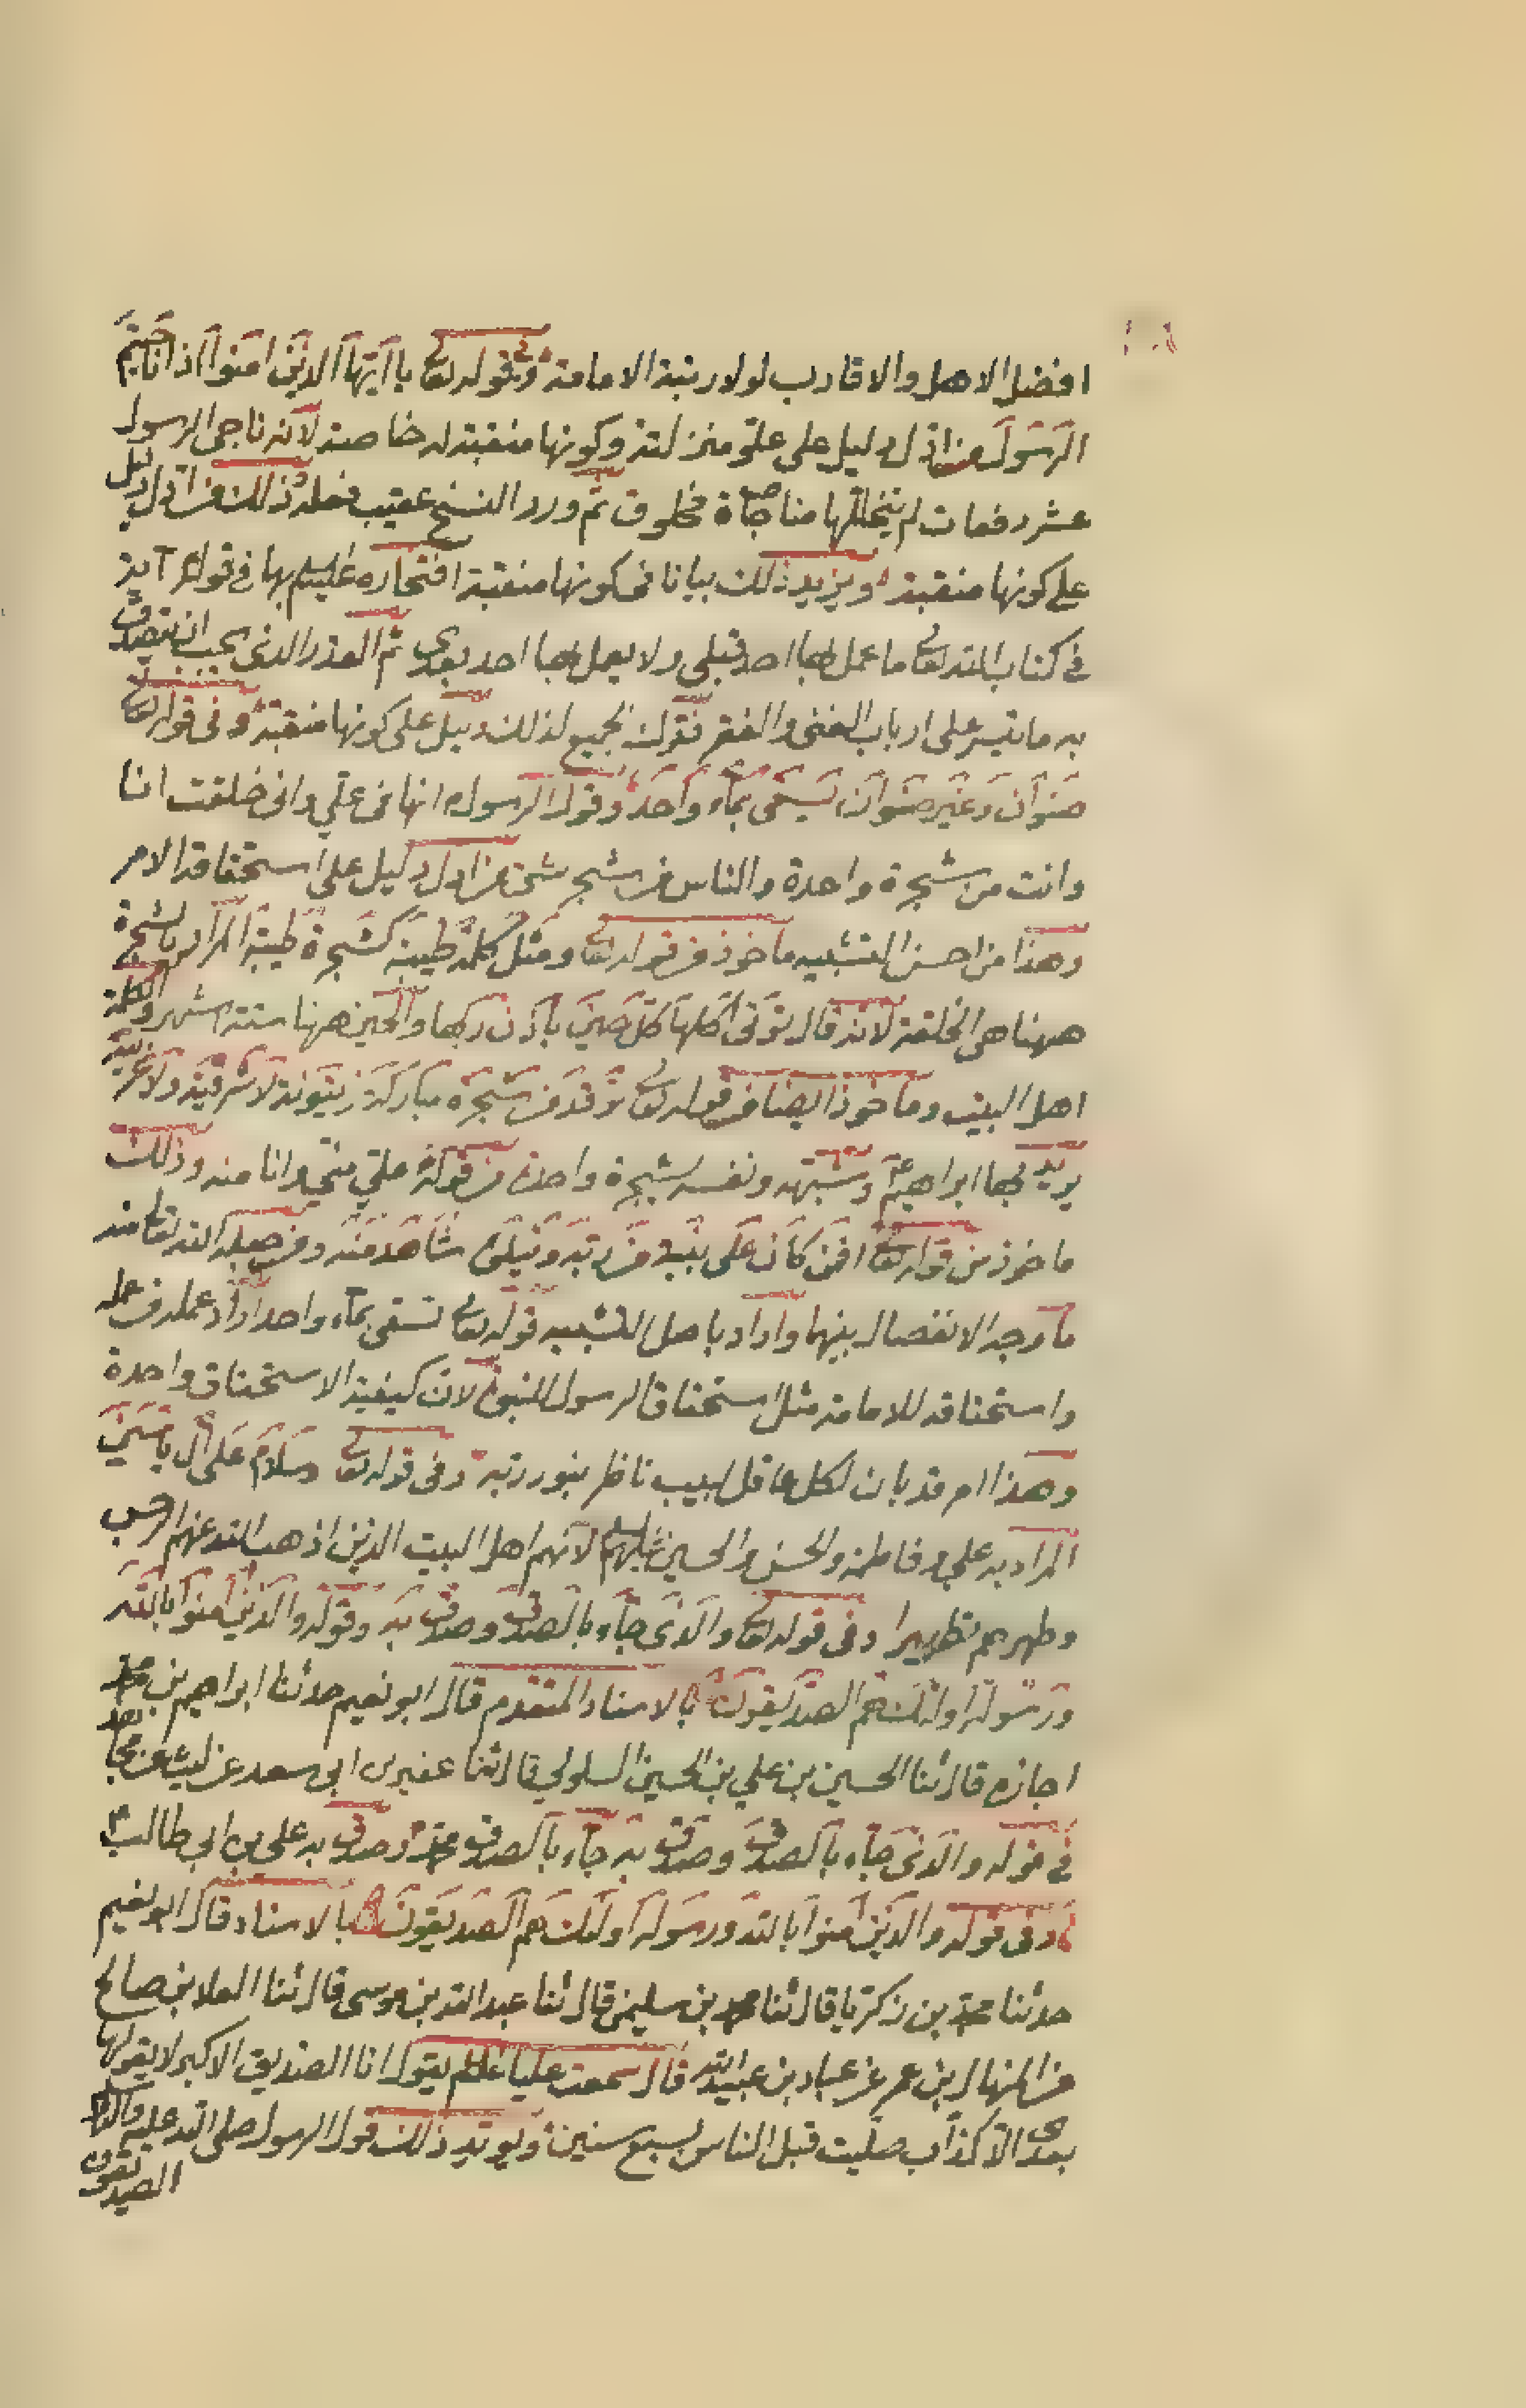 افضل الاهل والاقارب لولا رتبة الامامة وفي قوله تعالى يا ايها الذين امنوا اذا ناجيتم
الرسول من ادل دليل على علو منزلته وكونها منقبة له خاصة لانه ناجى الرسول
عشر دفعات لم يتخللها مناجاة مخلوق ثم ورد النسخ عقيب فعله ذلك من ادل دليل
على كونها منقبة ويزيد ذلك بيانا في كونها منقبة افتخاره عليه السلم بها في قوله آية
في كتاب الله تعالى ما عمل بها احد قبلي ولا يعمل بها احد بعدي ثم القدر الذي يجب ان يتصدق
به ما تيسر على ارباب الغنى والفقر فترك الجميع لذلك دليل على كونها منقبة وفي قوله تعالى
صنوان وغير صنوان يسقى بماء واحد وقول الرسول انها في علي واني خلقت انا
وانت من شجرة واحدة والناس من شجر شتى من ادل دليل على استحقاقه الامر
وهذا من احسن التشبيه ماخوذ من قوله تعالى ومثل كلمة طيبة كشجرة طيبة المراد بالشجرة
ههنا هي الخلقة لانه قال تؤتي اكلها كل حين باذن ربها والحين ههنا ستة اشهر والكلمة
اهل البيت وماخوذ ايضا من قوله تعالى توقد من شجرة مباركة زيتونة لا شرقية ولا غربية
يريد بها ابراهيم وشبهه ونفسه بشجرة واحدة من قوله علي مني وانا منه وذلك
ماخوذ من قوله تعالى افمن كان على بينة من ربه ويتلوه شاهد منه ومن جعله الله تعالى منه
ما وجه الانفصال بينهما واراد باصل التشبيه قوله تعالى تسقى بماء واحد اراد عمله من عمله
واستحقاقه للامامة مثل استحقاق الرسول للنبوة لان كيفية الاستحقاق واحدة
وهذا امر قد بان لكل عاقل لبيب ناظر بنور ربه وفي قوله تعالى سلام على آل ياسين
المراد به علي وفاطمة والحسن والحسين عليهم السلم لانهم اهل البيت الذين اذهب الله عنهم الرجس
وطهرهم تطهيرا وفي قوله تعالى والذي جاء بالصدق وصدق به وقوله والذين امنوا بالله
ورسوله اولئك هم الصديقون بالاسناد المتقدم قال ابو نعيم حدثنا ابراهيم بن محمد
اجازة قال ثنا الحسين بن علي بن الحسين السلولي قال ثنا عفير بن ابي سعد عن ليث عن مجاهد
في قوله والذي جاء بالصدق وصدق به جاء بالصدق محمد وصدق به علي بن ابي طالب
وفي قوله والذين امنوا بالله ورسوله اولئك هم الصديقون بالاسناد قال ابو نعيم
حدثنا محمد بن زكريا قال ثنا محمد بن سليمن قال ثنا عبد الله بن موسى قال ثنا العلا بن صالح
عن المنهال بن عمر عن عباد بن عبد الله قال سمعت عليا عليه السلم يقول انا الصديق الاكبر لا يقولها
بعدي الا كذاب صليت قبل الناس بسبع سنين ويؤيد ذلك قول الرسول صلى الله عليه واله
الصديقون